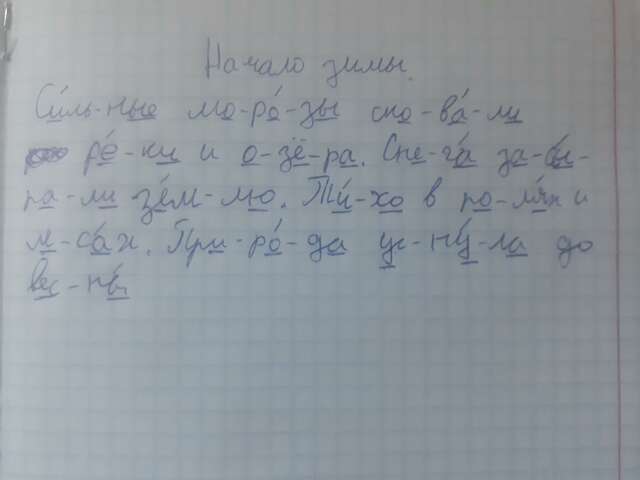 Начало зимы.
Си́ль-ные мо-ро́-зы ско-ва́-ли
ре́-ки и о-зё-ра. Сне-га́ за-бы-
ра-ли зе́м-лю. Ти́-хо в по-ля́х и
л-са́х. При-ро́-да ус-ну́-ла до
вес-ны́